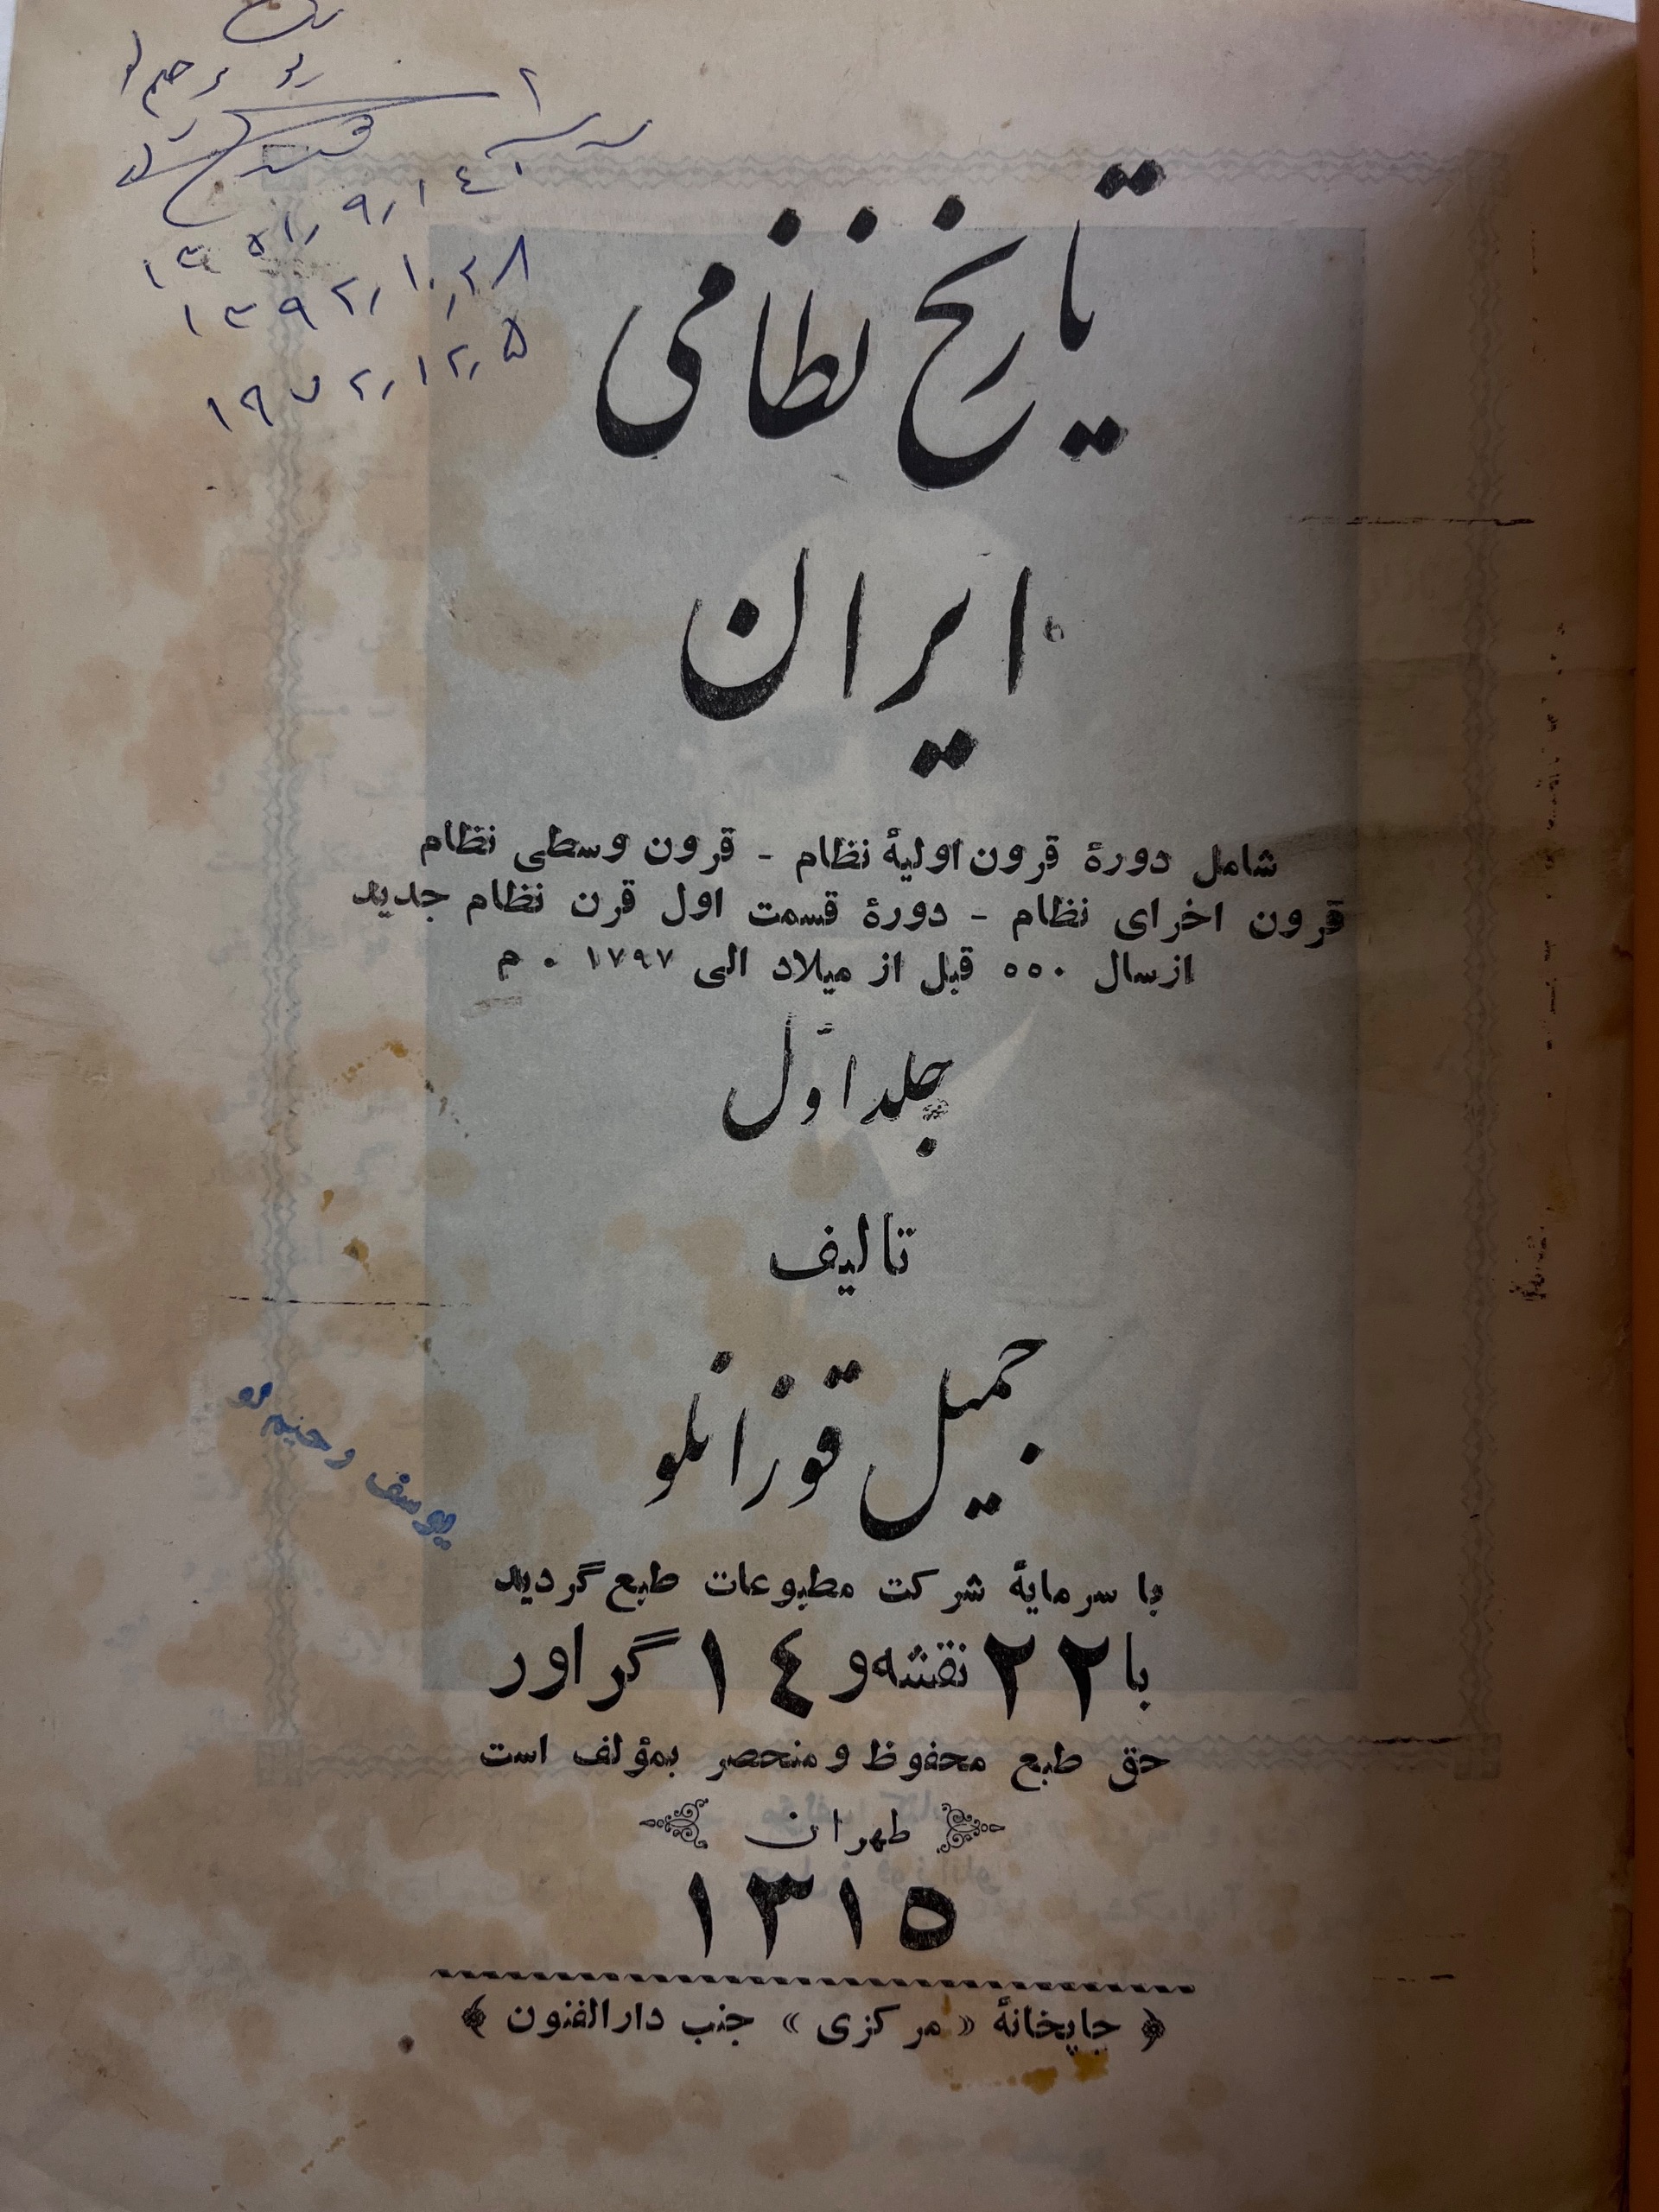 ۱۳۵۱٫۹٫۱٤
۱۳۹۲٫۱۰٫۲۸
۱۹۷۲٫۱۲٫۵
تاریخ نظامی
ایران
شامل دورهٔ قرون اولیهٔ نظام - قرون وسطی نظام
قرون اخرای نظام - دورهٔ قسمت اول قرن نظام جدید
از سال ۵۵۰ قبل از میلاد الی ۱۷۹۷ ۰ م
جلد اول
تالیف
جمیل قوزانلو
یوسف رحیم لو
با سرمایهٔ شرکت مطبوعات طبع گردید
با ۲۲ نقشه و ۱٤ گراور
حق طبع محفوظ و منحصر بمؤلف است
طهران
۱۳۱۵
﴿ چاپخانهٔ « مرکزی » جنب دارالفنون ﴾